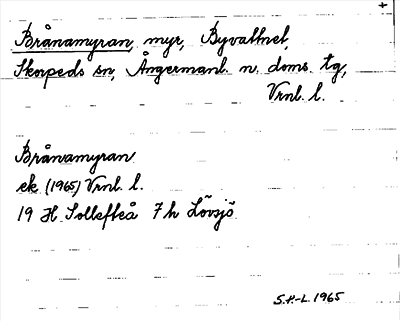 +
Brånamyran, myr, Byvattnet,
Skorpeds sn, Ångermanl. n. doms. tg,
Vrnl. l.
Brånamyran
ek (1965) Vrnl. l.
19 H Sollefteå 7 h Lövsjö
S.H-L. 1965